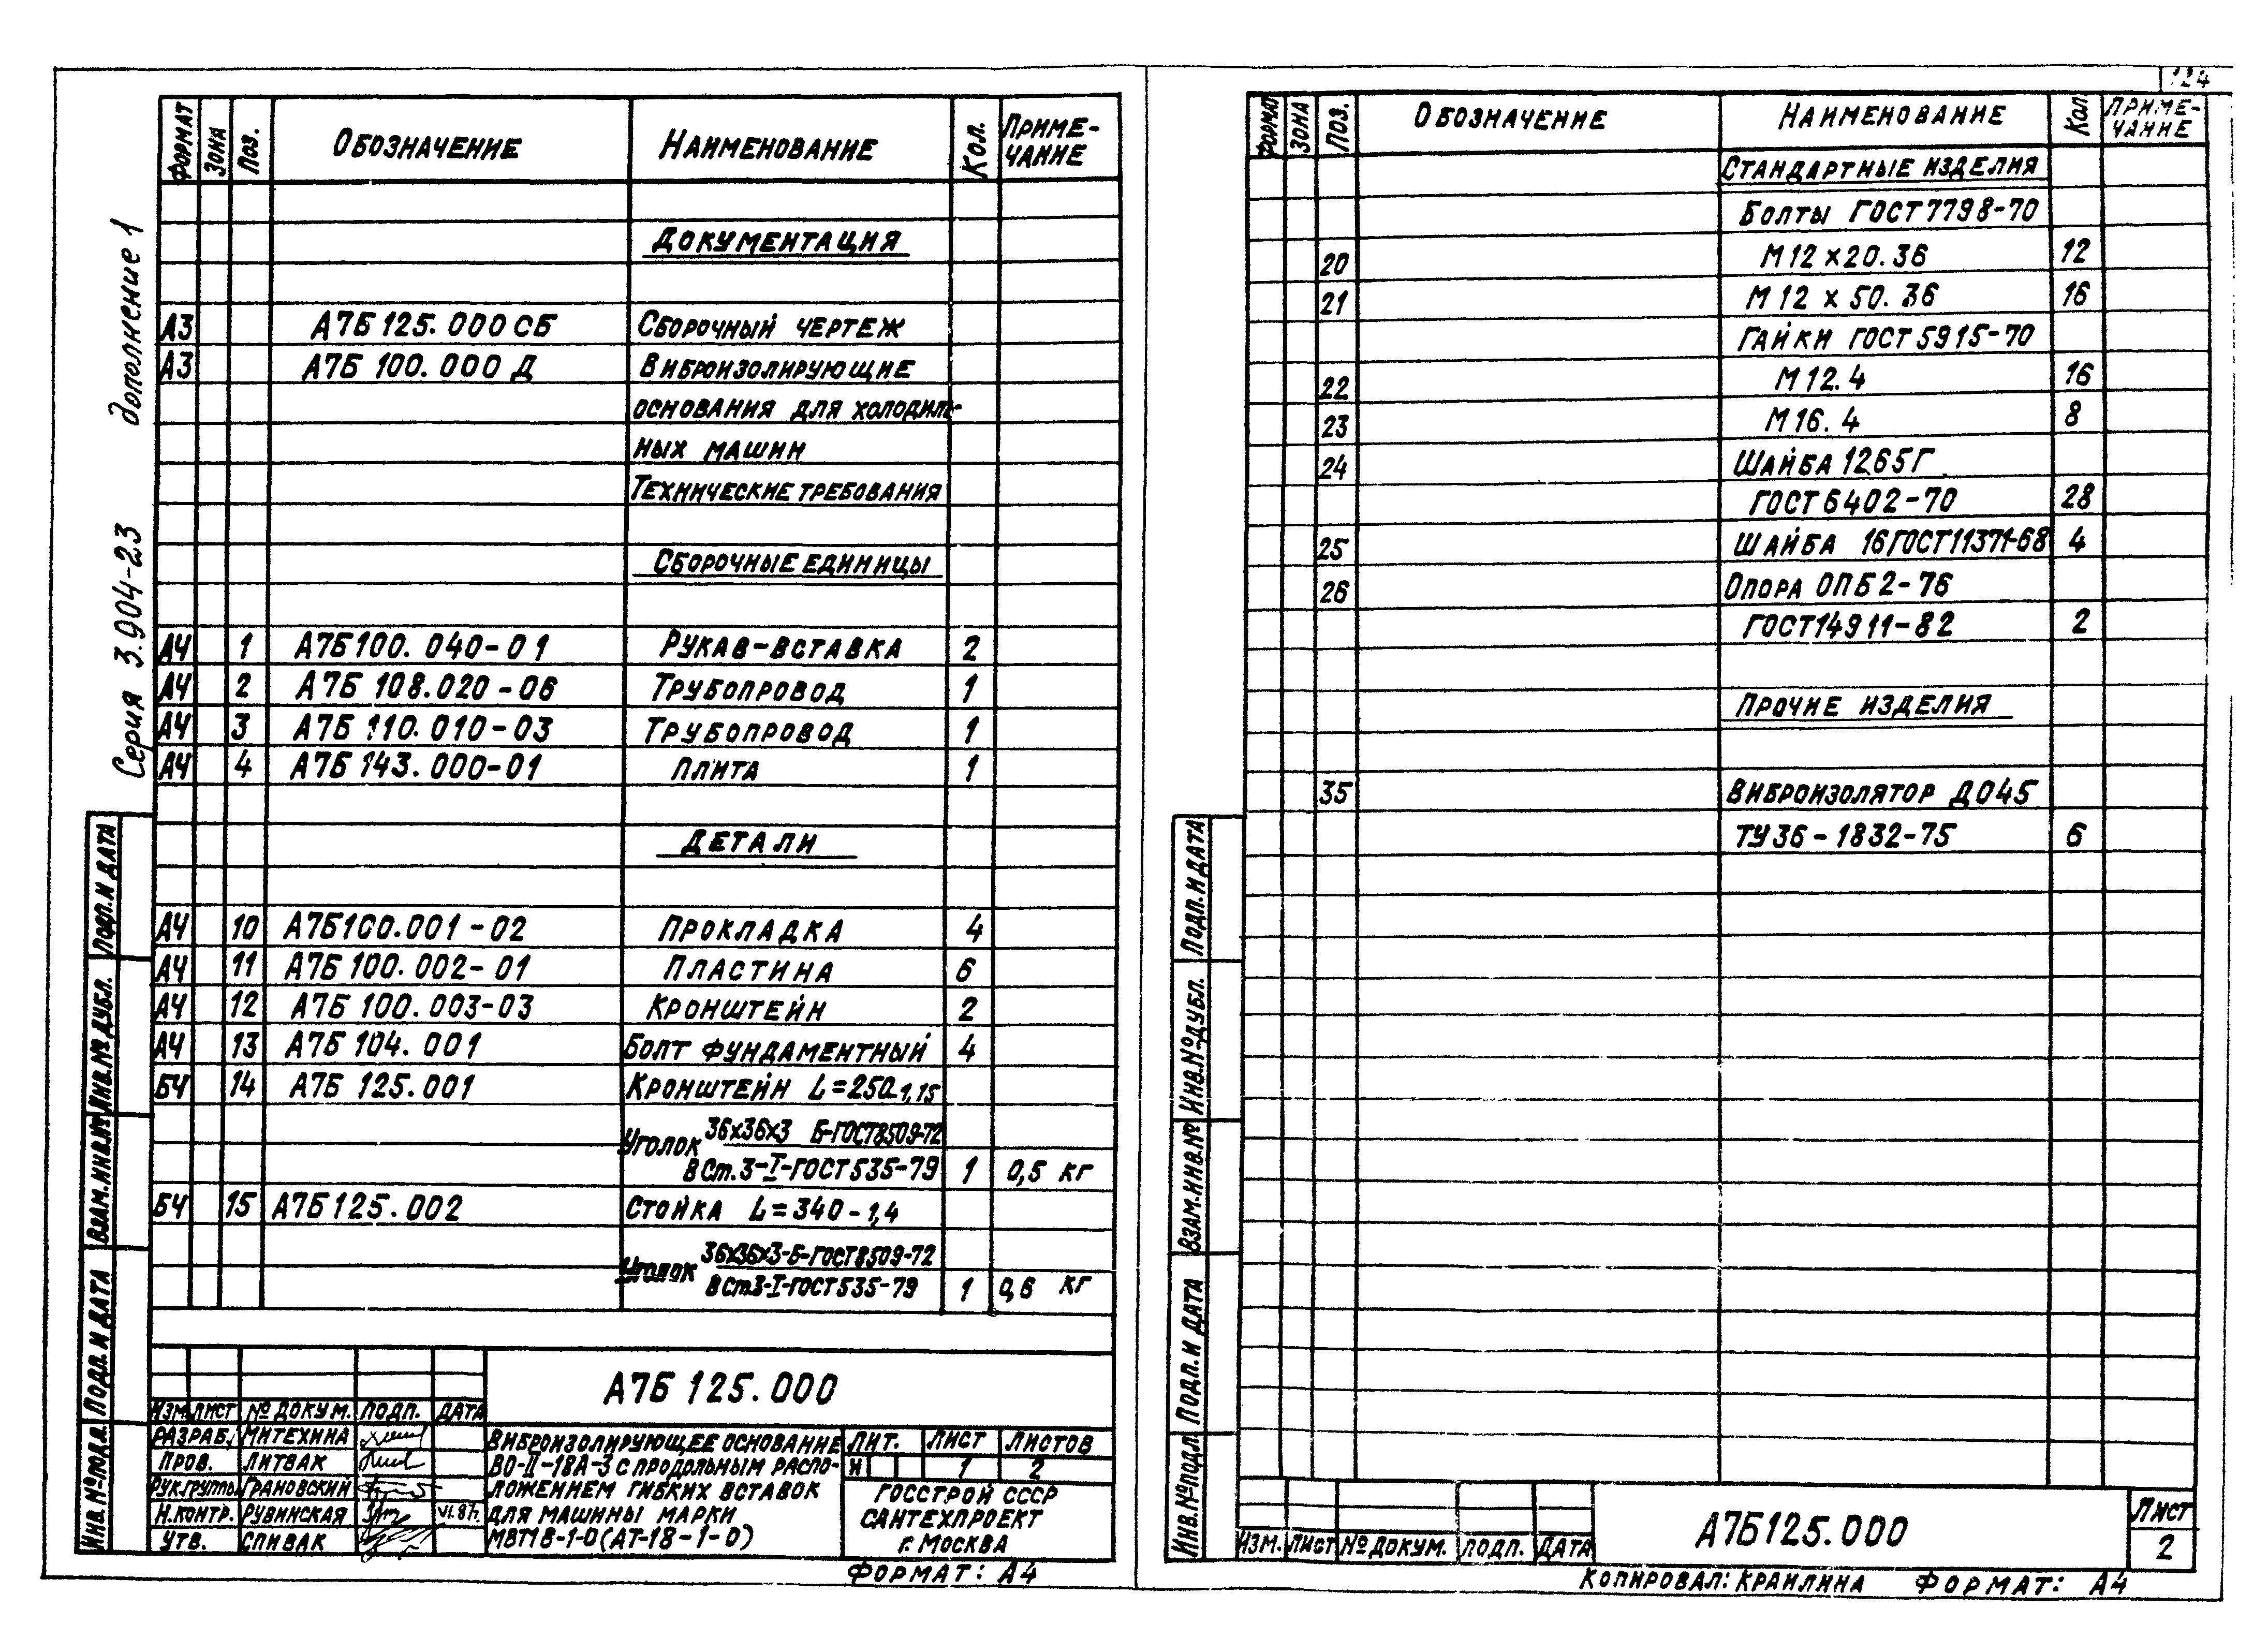 124
Серия 3.904-23 дополнение 1
ФОРМАТ ЗОНА ПОЗ. ОБОЗНАЧЕНИЕ НАИМЕНОВАНИЕ КОЛ. ПРИМЕ-
ЧАНИЕ
ДОКУМЕНТАЦИЯ
А3 А7Б 125.000 СБ СБОРОЧНЫЙ ЧЕРТЕЖ
А3 А7Б 100.000 Д ВИБРОИЗОЛИРУЮЩИЕ
ОСНОВАНИЯ ДЛЯ ХОЛОДИЛЬ-
НЫХ МАШИН
ТЕХНИЧЕСКИЕ ТРЕБОВАНИЯ
СБОРОЧНЫЕ ЕДИНИЦЫ
А4 1 А7Б100.040-01 РУКАВ-ВСТАВКА 2
А4 2 А7Б 108.020-06 ТРУБОПРОВОД 1
А4 3 А7Б 110.010-03 ТРУБОПРОВОД 1
А4 4 А7Б 143.000-01 ПЛИТА 1
ДЕТАЛИ
А4 10 А7Б100.001-02 ПРОКЛАДКА 4
А4 11 А7Б 100.002-01 ПЛАСТИНА 6
А4 12 А7Б 100.003-03 КРОНШТЕЙН 2
А4 13 А7Б 104.001 БОЛТ ФУНДАМЕНТНЫЙ 4
БЧ 14 А7Б 125.001 КРОНШТЕЙН L=250-1,15
УГОЛОК 36х36х3 Б-ГОСТ8509-72
ВСт.3-I-ГОСТ535-79 1 0,5 КГ
БЧ 15 А7Б125.002 СТОЙКА L=340-1,4
УГОЛОК 36х36х3-Б-ГОСТ8509-72
ВСт3-I-ГОСТ535-79 1 0,6 КГ
ПОДП. И ДАТА
ИНВ.№ ДУБЛ.
ВЗАМ.ИНВ.№
ПОДП. И ДАТА
ИНВ.№ПОДЛ.
А7Б 125.000
ИЗМ. ЛИСТ № ДОКУМ. ПОДП. ДАТА
РАЗРАБ. МИТЕХИНА
ПРОВ. ЛИТВАК
РУК.ГРУППЫ ГРАНОВСКИЙ
Н.КОНТР. РУВИНСКАЯ VI.87г.
УТВ. СПИВАК
ВИБРОИЗОЛИРУЮЩЕЕ ОСНОВАНИЕ
ВО-II-18А-3 С ПРОДОЛЬНЫМ РАСПО-
ЛОЖЕНИЕМ ГИБКИХ ВСТАВОК
ДЛЯ МАШИНЫ МАРКИ
МВТ18-1-0(АТ-18-1-0)
ЛИТ. ЛИСТ ЛИСТОВ
И 1 2
ГОССТРОЙ СССР
САНТЕХПРОЕКТ
г.МОСКВА
ФОРМАТ: А4
ФОРМАТ ЗОНА ПОЗ. ОБОЗНАЧЕНИЕ НАИМЕНОВАНИЕ КОЛ ПРИМЕ-
ЧАНИЕ
СТАНДАРТНЫЕ ИЗДЕЛИЯ
БОЛТЫ ГОСТ7798-70
20 М12х20.36 12
21 М12 х 50.36 16
ГАЙКИ ГОСТ 5915-70
22 М12.4 16
23 М16.4 8
24 ШАЙБА 1265Г
ГОСТ6402-70 28
25 ШАЙБА 16ГОСТ11371-68 4
26 ОПОРА ОПБ2-76
ГОСТ14911-82 2
ПРОЧИЕ ИЗДЕЛИЯ
35 ВИБРОИЗОЛЯТОР ДО45
ТУ36-1832-75 6
ПОДП. И ДАТА
ИНВ.№ДУБЛ.
ВЗАМ.ИНВ.№
ПОДП. И ДАТА
ИНВ.№ПОДЛ
ИЗМ. ЛИСТ № ДОКУМ. ПОДП. ДАТА
А7Б125.000
ЛИСТ
2
КОПИРОВАЛ: КРАИЛИНА ФОРМАТ: А4